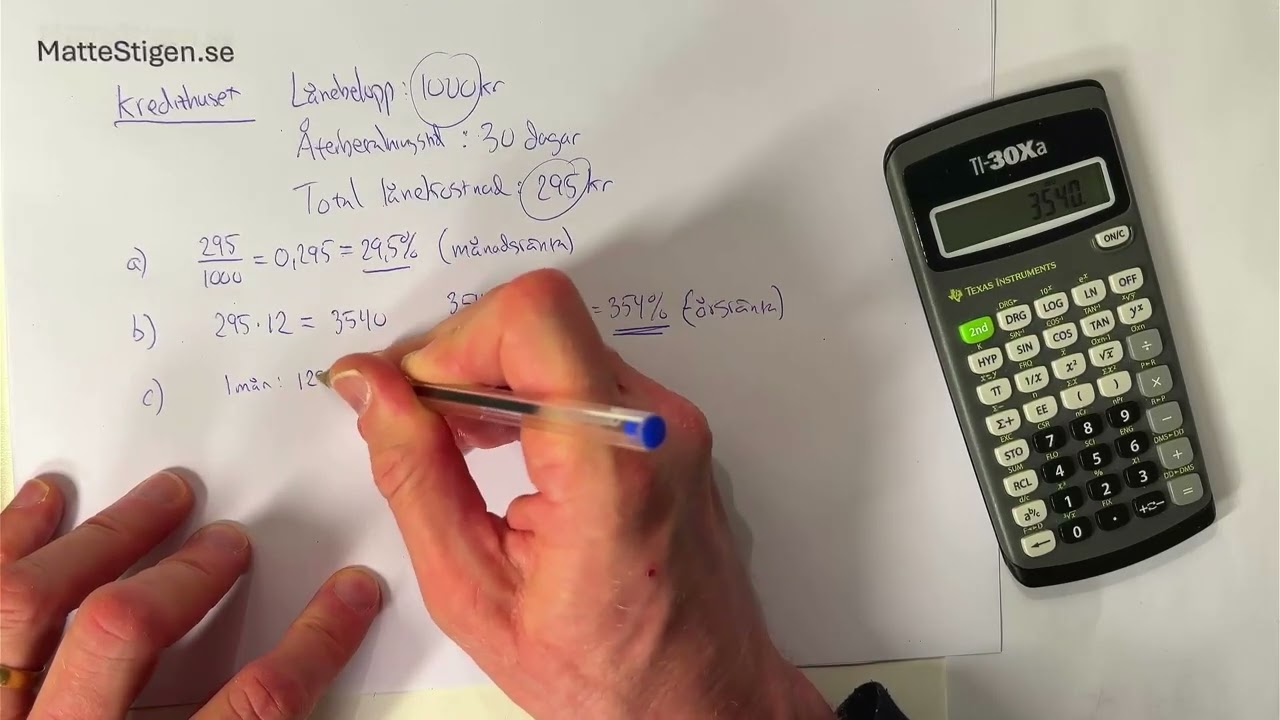 MatteStigen.se
Kredithuset Lånebelopp: 1000 kr
Återbetalningstid: 30 dagar
Total lånekostnad: 295 kr
a) 295/1000 = 0,295 = 29,5% (månadsränta)
b) 295·12 = 3540 354 = 354% (årsränta)
c) 1 mån: 129
TI-30Xa
3540.
ON/C
TEXAS INSTRUMENTS
2nd DRG LOG LN OFF
HYP SIN COS TAN yˣ
π 1/x x² √x ÷
Σ+ EE ( ) ×
STO 7 8 9 −
RCL 4 5 6 +
a b/c 1 2 3 =
← 0 . +⇄−